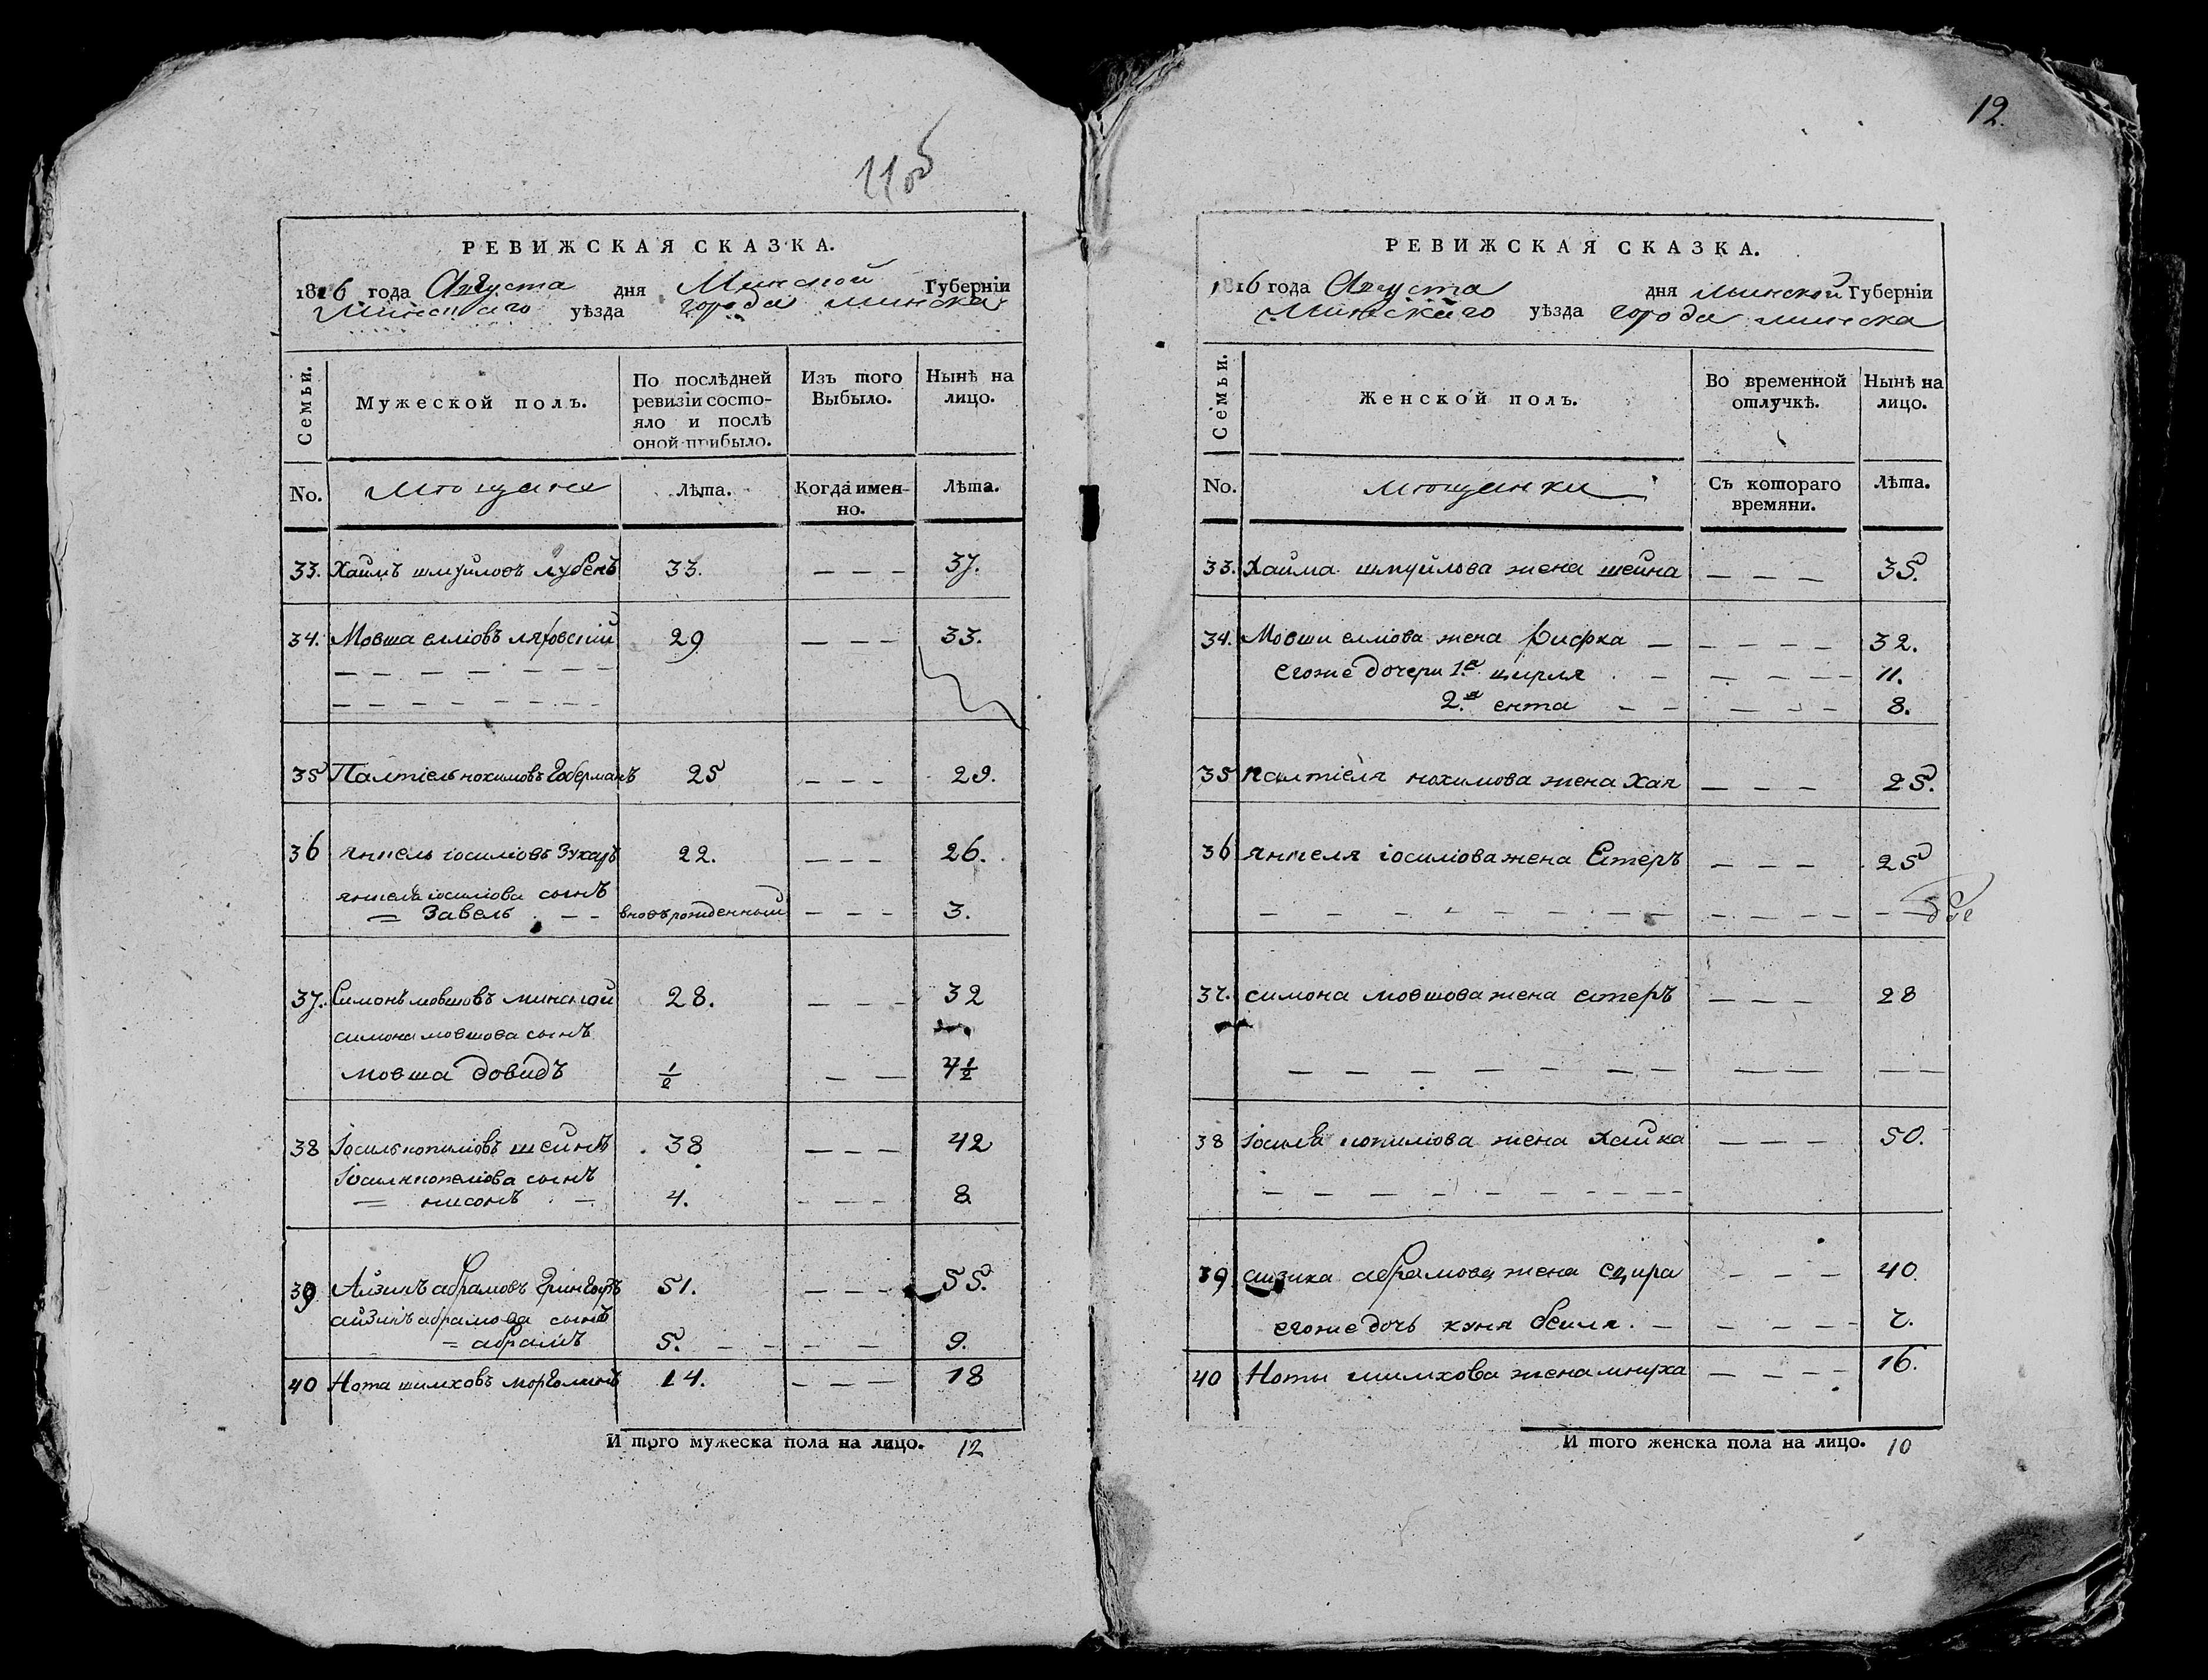 11об
РЕВИЖСКАЯ СКАЗКА.
1816 года Августа дня Минской Губернїи
Минскаго уѣзда города минска
Семьи.
Мужеской полъ.
По послѣдней ревизїи состо-
яло и послѣ
оной прибыло.
Изъ того
Выбыло.
Нынѣ на
лицо.
No.
Мѣщане
Лѣта.
Когда имен-
но.
Лѣта.
33. Хаимъ шмуйловъ лубенъ 33. — — — 37.
34. Мовша еллїовъ ляховскїй 29 — — — 33.
35 Палтїель нохимовъ Гоберманъ 25 — — — 29.
36 янкель іосилїовъ Зухаръ 22. — — — 26.
янкеля іосилїова сынъ
= Завель — — вновъ рожденный — — — 3.
37. Симонъ мовшовъ минской 28. — — — 32
симона мовшова сынъ
мовша довидъ 1/2 — — 4 1/2
38 Іосиль копилїовъ шейнъ 38 — — — 42
Іосиля копелїова сынъ
= нисонъ — 4. — — — 8
39 Айзикъ абрамовъ 51. — — — 55.
айзика абрамова сынъ
= абрамъ 5. — — — — 9.
40 Нота шимховъ морголинъ 14. — — — 18
И того мужеска пола на лицо. 12
12.
РЕВИЖСКАЯ СКАЗКА.
1816 года Августа дня минской Губернїи
Минскаго уѣзда города минска
Семьи.
Женской полъ.
Во временной
отлучкѣ.
Нынѣ на
лицо.
No.
мѣщанки
Съ котораго
времяни.
Лѣта.
33. Хаима шмуйлова жена шейна — — — 35.
34. Мовши еллїова жена Рифка — — — — — 32.
егоже дочери 1.я цирля — — — — — 11.
2.я ента — — — — — 8.
35 палтїеля нохимова жена Хая — — — 25.
36 янкеля іосилїова жена Естеръ — — — 25
37. симона мовшова жена естеръ — — — 28
38 Іосиля копилїова жена хайка — — — 50.
39 айзика абрамова жена сцира — — — 40.
егоже дочь куня бейля. — — — — — 7.
40 Ноты шимхова жена мнуха — — — — 16.
И того женска пола на лицо. 10